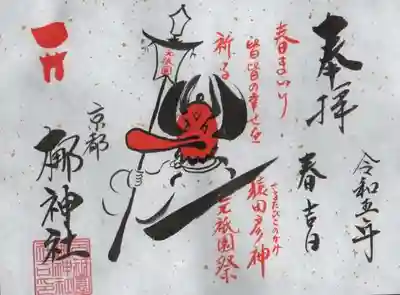 奉拝
令和五年
春吉日
春まいり
皆皆の幸せを
祈る
元祇園
さるたひこのかみ
猿田彦神
元祇園祭
京都
梛神社